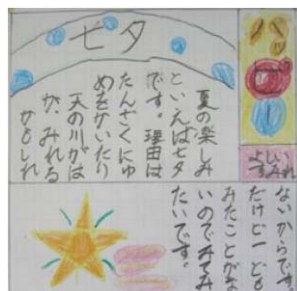 七夕
夏の楽しみ
といえば七夕
です。理由は
たんざくにゅ
めをかいたり
天の川がは
が、みれる
かもしれ
ないからです。
だけど一ども
みたことがな
いのでみてみ
たいです。